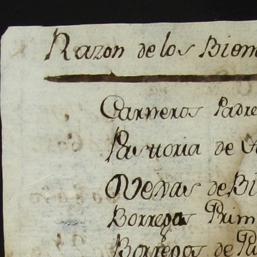 Razon de los Bien
Carneros Padre
Pastoria de
Ovejas de Bi
Borregas Prim
Borregas de Pa